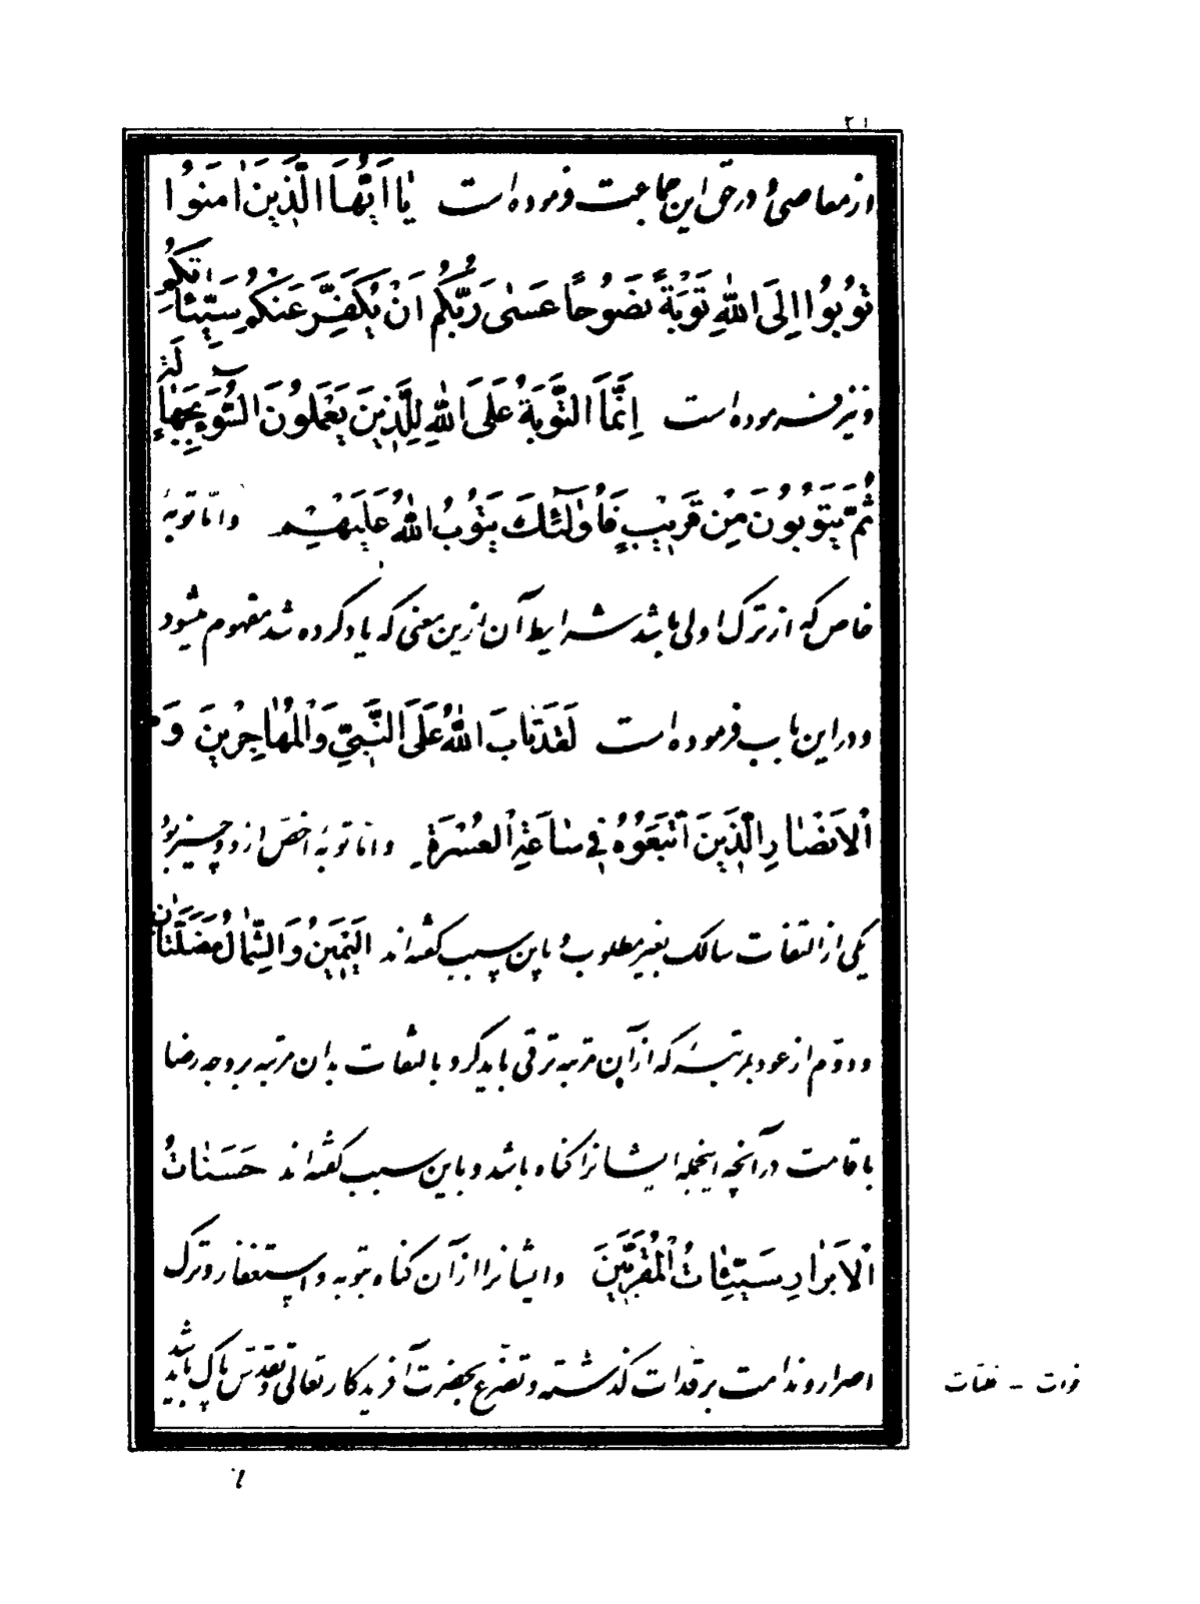 ۲۱
از معاصی و در حق این جماعت فرموده است یٰا اَیُّهَا الَّذینَ اٰمَنوُا
توُبوُا اِلَی اللّٰهِ تَوْبَةً نَصُوحاً عَسٰی رَبُّکُم اَنْ یُکَفِّرَ عَنکُم سَیِّئٰاتِکُم
و نیز فرموده است اِنَّمَا التَّوبَةُ عَلَی اللّٰهِ لِلَّذینَ یَعْمَلُونَ السُّوءَ بِجَهٰالَةٍ
ثُمَّ یَتوُبوُنَ مِن قَریبٍ فَاُولٰئکَ یَتُوبُ اللّٰهُ عَلَیهِم و امّا توبهٔ
خاص که از ترک اولی باشد شرایط آن ازین معنی که یاد کرده شد مفهوم میشود
و در این باب فرموده است لَقَد تٰابَ اللّٰهُ عَلَی النَّبیِّ وَالْمُهٰاجِرینَ وَ
الْاَنصٰارِ الَّذینَ اتَّبَعُوهُ فی سٰاعَةِ الْعُسْرَةِ و اما توبهٔ اخصّ از دو چیز بود
یکی از التفات سالک بغیر مطلوب و باین سبب گفته‌اند الیَمینُ وَالشِّمٰالُ مَضَلَّتٰان
و دوّم از عود بمرتبهٔ که از آن مرتبه ترقی باید کرد بالتفات بدان مرتبه بر وجه رضا
باقامت در آنچه اینجمله ایشانرا گناه باشد و باین سبب گفته‌اند حَسَنٰاتُ
الْاَبرٰارِ سَیِّئٰاتُ الْمُقَرَّبینَ و ایشانرا از آن گناه بتوبه و استغفار و ترک
اصرار و ندامت بر فوات گذشته و تضرّع بحضرت آفریدگار تعالی و تقدّس پاک باید شد
فوات -